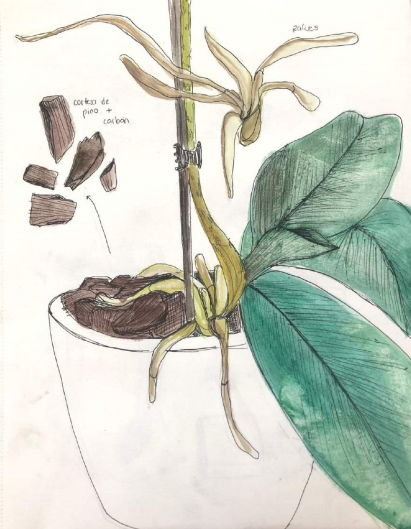 raíces
corteza de
pino +
carbon